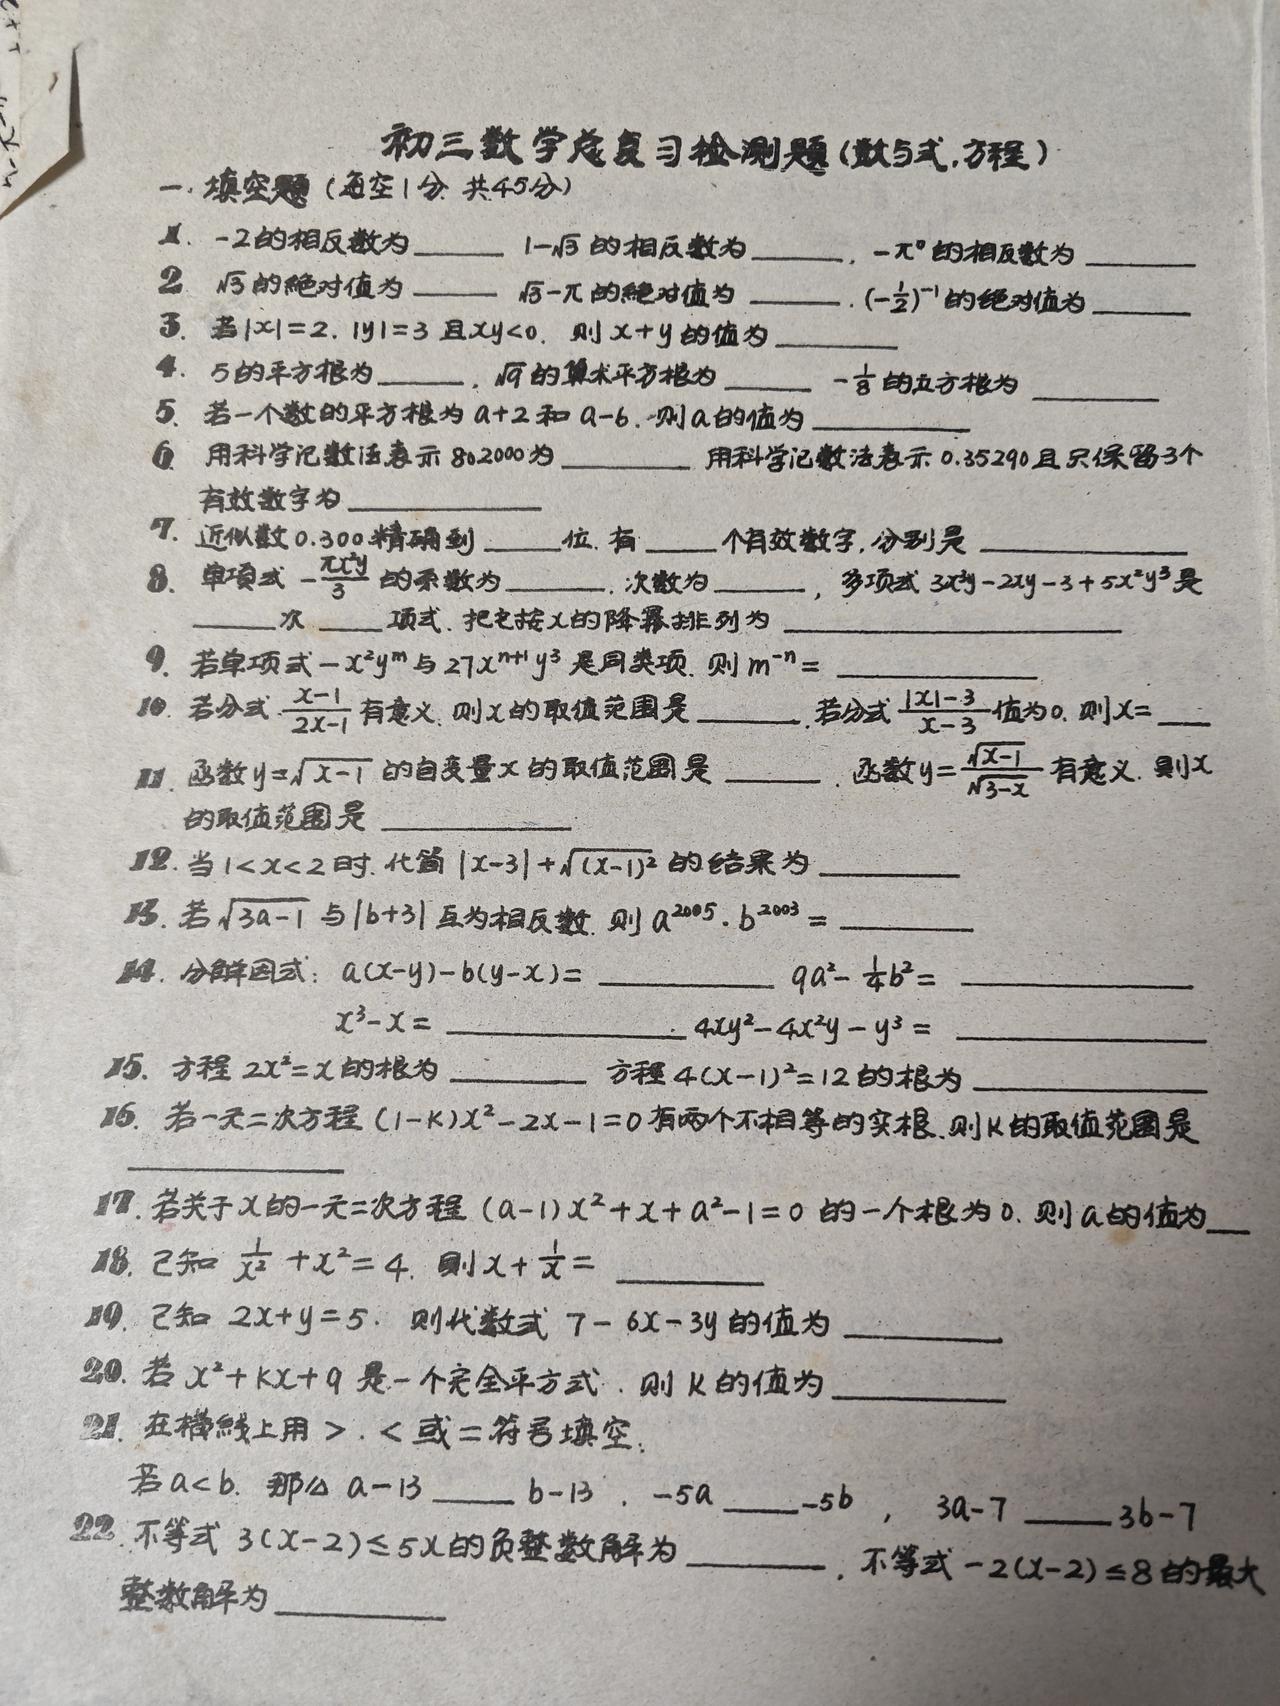 初三数学总复习检测题(数与式,方程)
一. 填空题(每空1分 共45分)
1. -2的相反数为____ 1-√3的相反数为____, -π⁰的相反数为____
2 √3的绝对值为____ √3-π的绝对值为____. (-1/2)⁻¹的绝对值为____
3. 若|x|=2. |y|=3且xy<0. 则x+y的值为____
4. 5的平方根为____, √9的算术平方根为____ -1/8的立方根为____
5. 若一个数的平方根为a+2和a-6. 则a的值为____
6. 用科学记数法表示802000为____ 用科学记数法表示0.35290且只保留3个
有效数字为____
7. 近似数0.300精确到____位. 有____个有效数字, 分别是____
8. 单项式 -πx²y/3 的系数为____. 次数为____, 多项式 3x³y-2xy-3+5x²y³是
____次____项式. 把它按x的降幂排列为____
9. 若单项式-x²yᵐ与27xⁿ⁺¹y³是同类项. 则m⁻ⁿ=____
10. 若分式 (x-1)/(2x-1) 有意义. 则x的取值范围是____. 若分式 (|x|-3)/(x-3) 值为0. 则x=____
11. 函数y=√(x-1) 的自变量x的取值范围是____. 函数y=√(x-1)/√(3-x) 有意义. 则x
的取值范围是____
12. 当1<x<2时. 代简|x-3|+√((x-1)²)的结果为____
13. 若√(3a-1)与|b+3|互为相反数. 则a²⁰⁰⁵·b²⁰⁰³=____
14. 分解因式: a(x-y)-b(y-x)=____ 9a²-1/4b²=____
x³-x=____. 4xy²-4x²y-y³=____
15. 方程2x²=x的根为____ 方程4(x-1)²=12的根为____
16. 若一元二次方程(1-K)x²-2x-1=0有两个不相等的实根. 则K的取值范围是
____
17. 若关于x的一元二次方程(a-1)x²+x+a²-1=0的一个根为0. 则a的值为____
18. 已知 1/x²+x²=4. 则x+1/x=____
19. 已知 2x+y=5. 则代数式7-6x-3y的值为____
20. 若x²+Kx+9是一个完全平方式. 则K的值为____
21. 在横线上用>. <或=符号填空:
若a<b. 那么a-13____b-13. -5a____-5b, 3a-7____3b-7
22. 不等式3(x-2)≤5x的负整数解为____. 不等式-2(x-2)≤8的最大
整数解为____